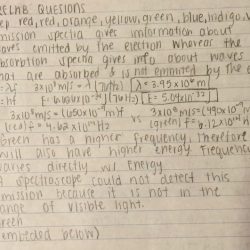 RELAB QUESIONS
ep red, red, orange, yellow, green, blue, indigo,
mission spectra gives information about
aves emitted by the electron whereas the
bsorption spectra gives info about waves
hat are absorbed & is not emmited by the e
=hf 3x10⁸m/s = λ(76Hz) λ = 3.95x10⁶m
3x10⁸m/s = (650x10⁻⁹m)f vs 3x10⁸m/s = (490x10⁻⁹m)
(red) f = 4.62x10¹⁴Hz (green) f = 6.12x10¹⁴H
Green has a higher frequency, therefore
will also have higher energy. Frequenc
varies directly w/ Energy.
A spectroscope could not detect this
mission because it is not in the
ange of visible light.
reen
embeded below)